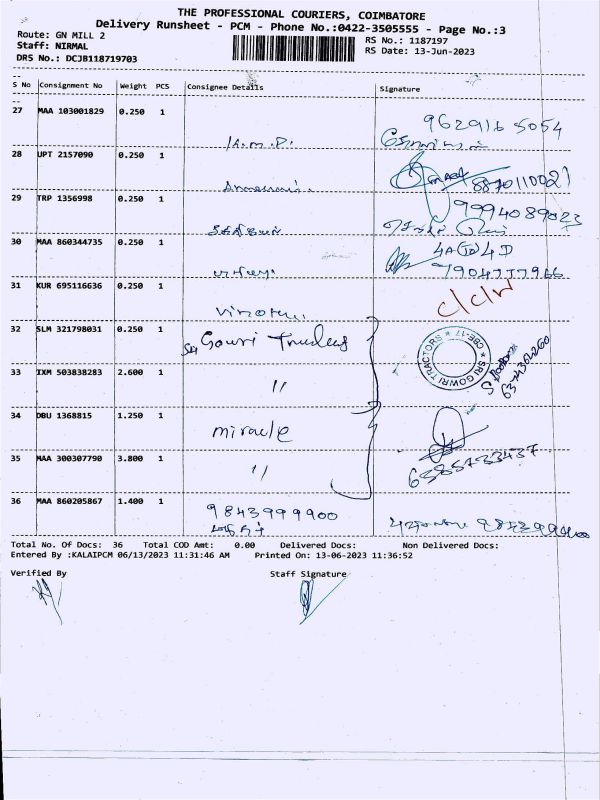 THE PROFESSIONAL COURIERS, COIMBATORE
Delivery Runsheet - PCM - Phone No.:0422-3505555 - Page No.:3
Route: GN MILL 2
RS No.: 1187197
Staff: NIRMAL
RS Date: 13-Jun-2023
DRS No.: DCJB118719703
S No Consignment No Weight PCS Consignee Details Signature
27 MAA 103001829 0.250 1
9629165054
K.M.P.
28 UPT 2157090 0.250 1
8870110021
29 TRP 1356998 0.250 1
9994089023
30 MAA 860344735 0.250 1
7904777966
31 KUR 695116636 0.250 1
C/C/W
32 SLM 321798031 0.250 1
Sri Gowri Tractors
SRI GOWRI TRACTORS * CBE-17 *
33 IXM 503838283 2.600 1
"
34 DBU 1368815 1.250 1
miracle
35 MAA 300307790 3.800 1
"
6385733437
36 MAA 860205867 1.400 1
9843999900
Total No. Of Docs: 36 Total COD Amt: 0.00 Delivered Docs: Non Delivered Docs:
Entered By :KALAIPCM 06/13/2023 11:31:46 AM Printed On: 13-06-2023 11:36:52
Verified By Staff Signature